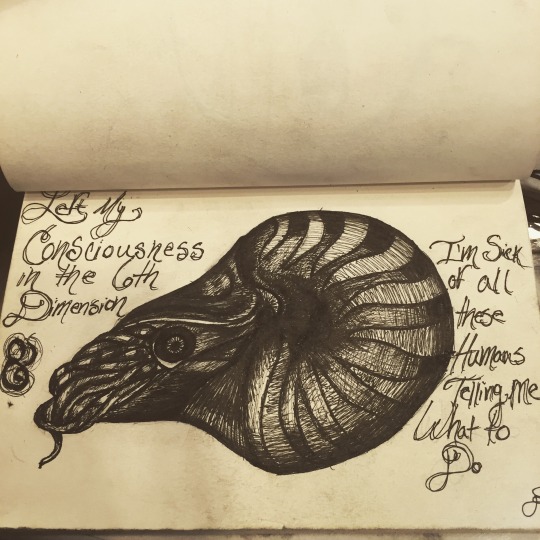 Left My
Consciousness
in the 6th
Dimension
8
I'm Sick
of all
these
Humans
Telling Me
What to
Do